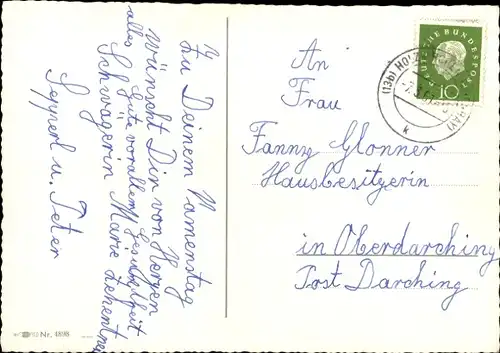 Zu Deinem Namenstag
wünscht Dir von Herzen
alles Gute vorallem Gesundheit
Schwägerin Marie Zehentner
Sepperl u. Peter
Nr. 4898
An
Frau
Fanny Glonner
Hausbesitzerin
in Oberdarching
Post Darching
DEUTSCHE BUNDESPOST
10
(13b) HOLZ
k